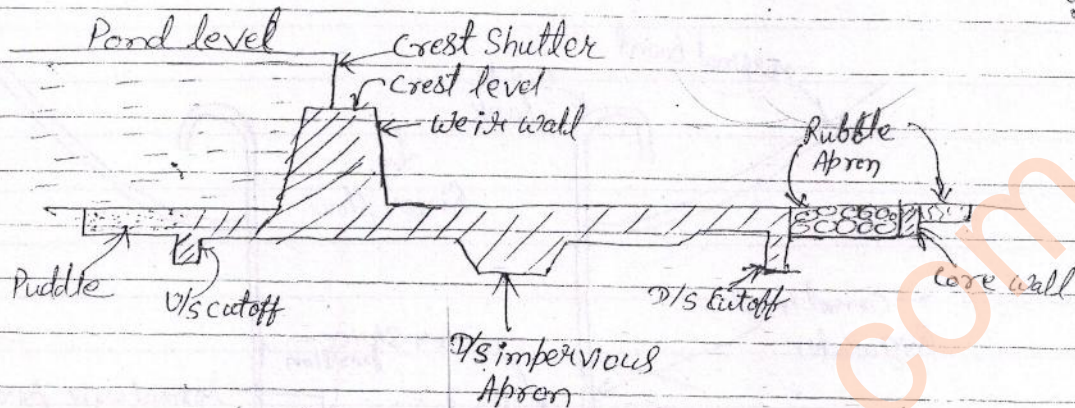 Pond level
Crest Shutter
Crest level
Weir wall
Rubble
Apron
Puddle
U/S cutoff
D/S impervious
Apron
D/S Cutoff
Core wall
com